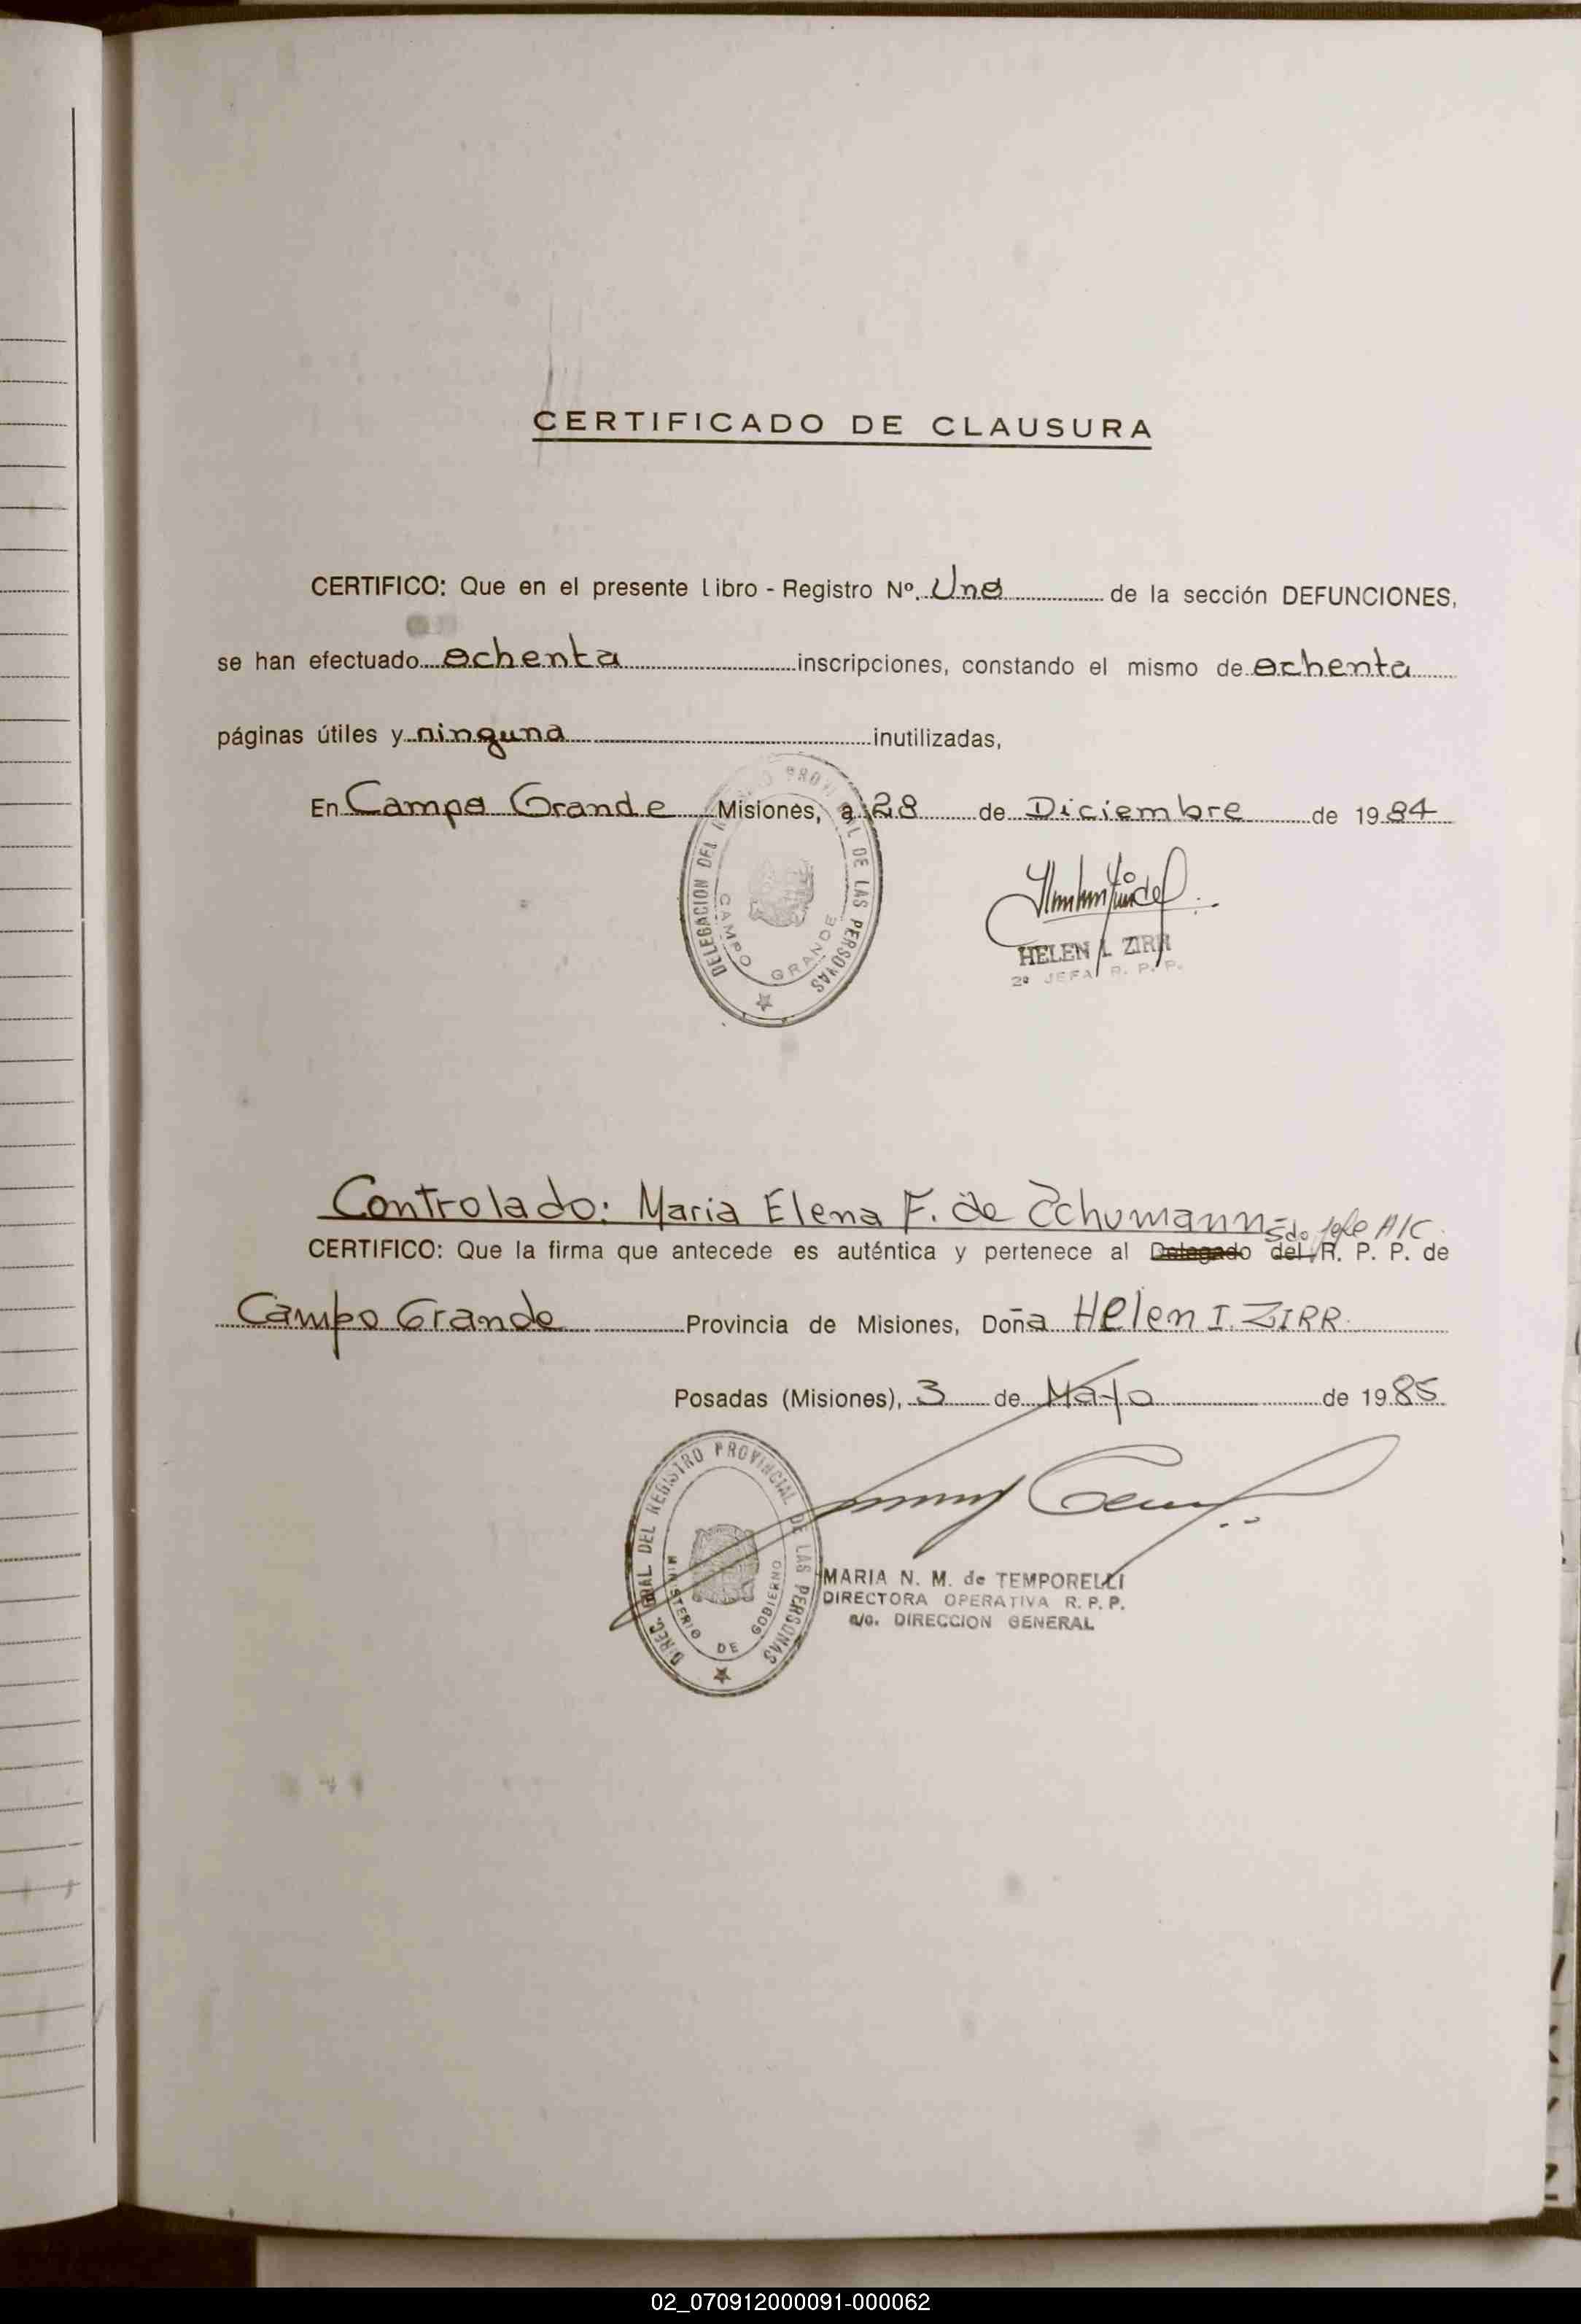 CERTIFICADO DE CLAUSURA
CERTIFICO: Que en el presente Libro - Registro Nº. Uno de la sección DEFUNCIONES,
se han efectuado ochenta inscripciones, constando el mismo de ochenta
páginas útiles y ninguna inutilizadas,
En Campo Grande Misiones, a 28 de Diciembre de 1984
DELEGACION DEL REGISTRO PROVINCIAL DE LAS PERSONAS
CAMPO GRANDE
HELEN I. ZIRR
2ª JEFA R. P. P.
Controlado: Maria Elena F. de Zchumann
Sdo Jefe A/C.
CERTIFICO: Que la firma que antecede es auténtica y pertenece al Delegado del R. P. P. de
Campo Grande Provincia de Misiones, Doña Helen I. ZIRR
Posadas (Misiones), 3 de Mayo de 1985
DIREC. GRAL DEL REGISTRO PROVINCIAL DE LAS PERSONAS
MINISTERIO DE GOBIERNO
MARIA N. M. de TEMPORELLI
DIRECTORA OPERATIVA R. P. P.
a/c. DIRECCION GENERAL
02_070912000091-000062